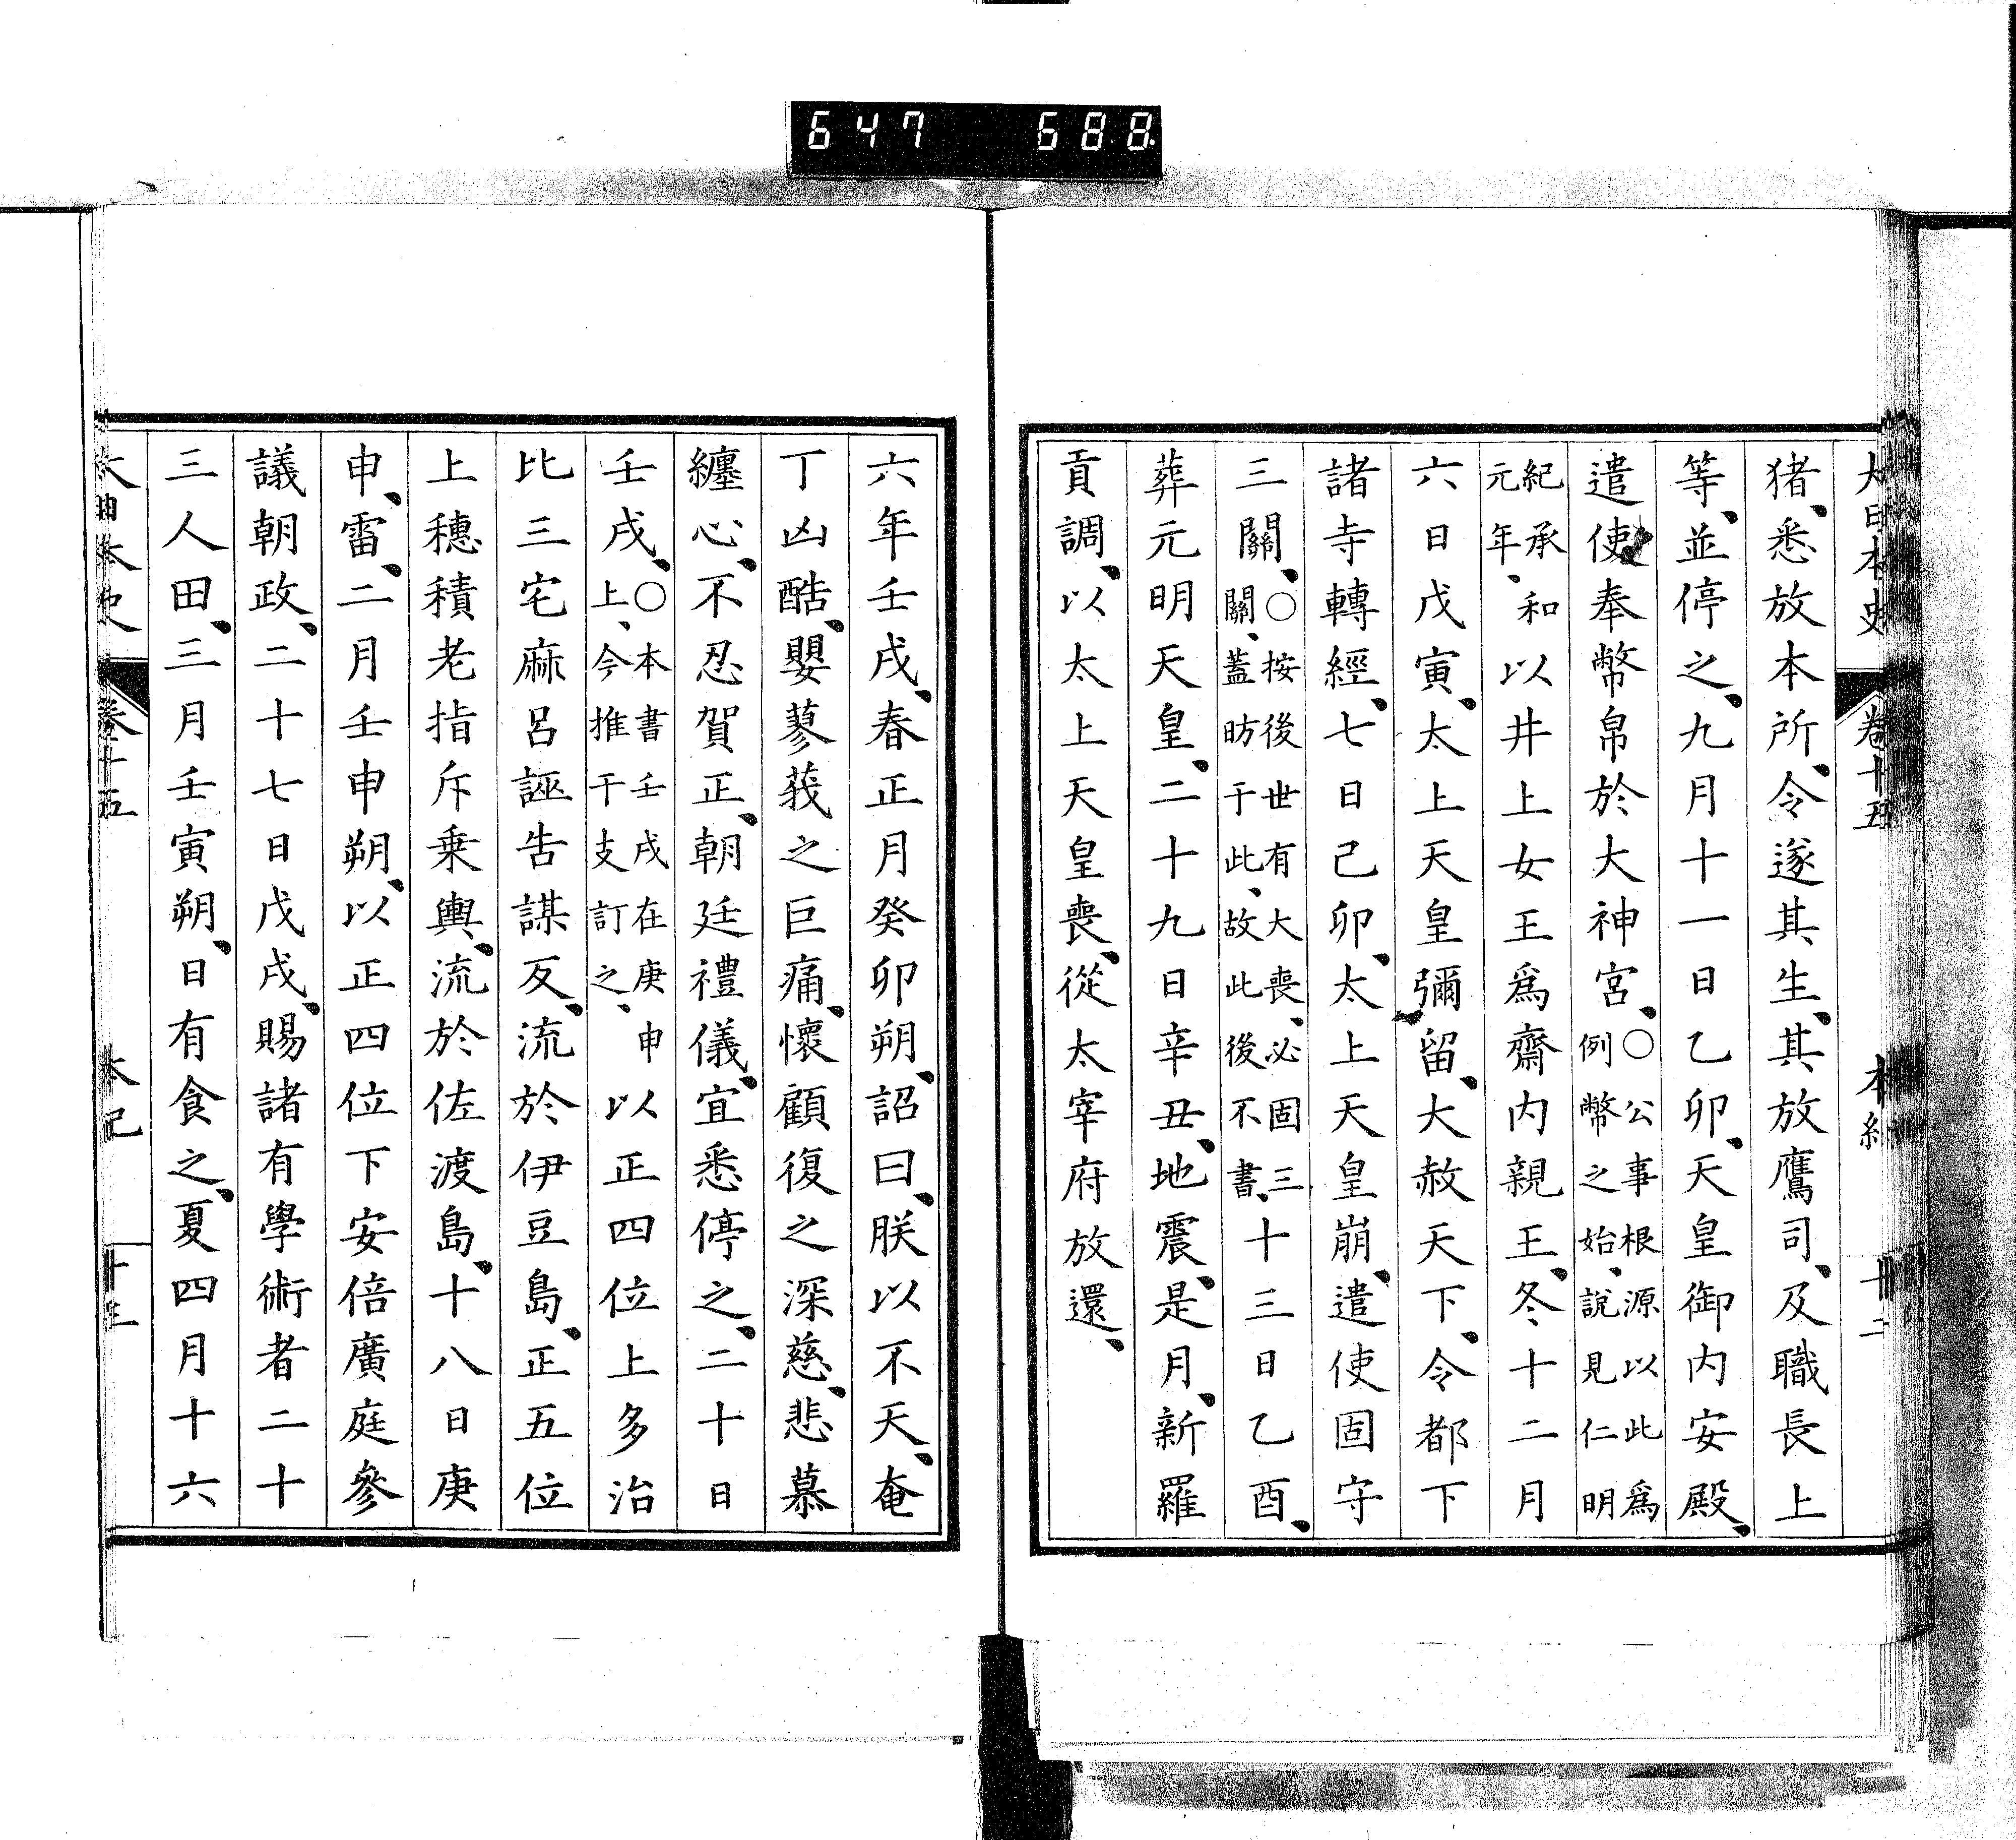 647 688
大日本史 卷十五 本紀 十二
猪、悉放本所、令遂其生、其放鷹司、及職長上
等、並停之、九月十一日乙卯、天皇御内安殿、
遣使奉幣帛於大神宮、○公事根源以此爲例幣之始、説見仁明
紀承和元年、以井上女王爲齋内親王、冬十二月
六日戊寅、太上天皇彌留、大赦天下、令都下
諸寺轉經、七日己卯、太上天皇崩、遣使固守
三關、○按後世有大喪、必固三關、蓋昉于此、故此後不書、十三日乙酉、
葬元明天皇、二十九日辛丑、地震、是月、新羅
貢調、以太上天皇喪、從太宰府放還、
六年壬戌、春正月癸卯朔、詔曰、朕以不天、奄
丁凶酷、嬰蓼莪之巨痛、懷顧復之深慈、悲慕
纏心、不忍賀正、朝廷禮儀、宜悉停之、二十日
壬戌、○本書壬戌在庚申上、今推干支訂之、以正四位上多治
比三宅麻呂誣告謀反、流於伊豆島、正五位
上穗積老指斥乗輿、流於佐渡島、十八日庚
申、雷、二月壬申朔、以正四位下安倍廣庭參
議朝政、二十七日戊戌、賜諸有學術者二十
三人田、三月壬寅朔、日有食之、夏四月十六
大日本史 卷十五 本紀 十三